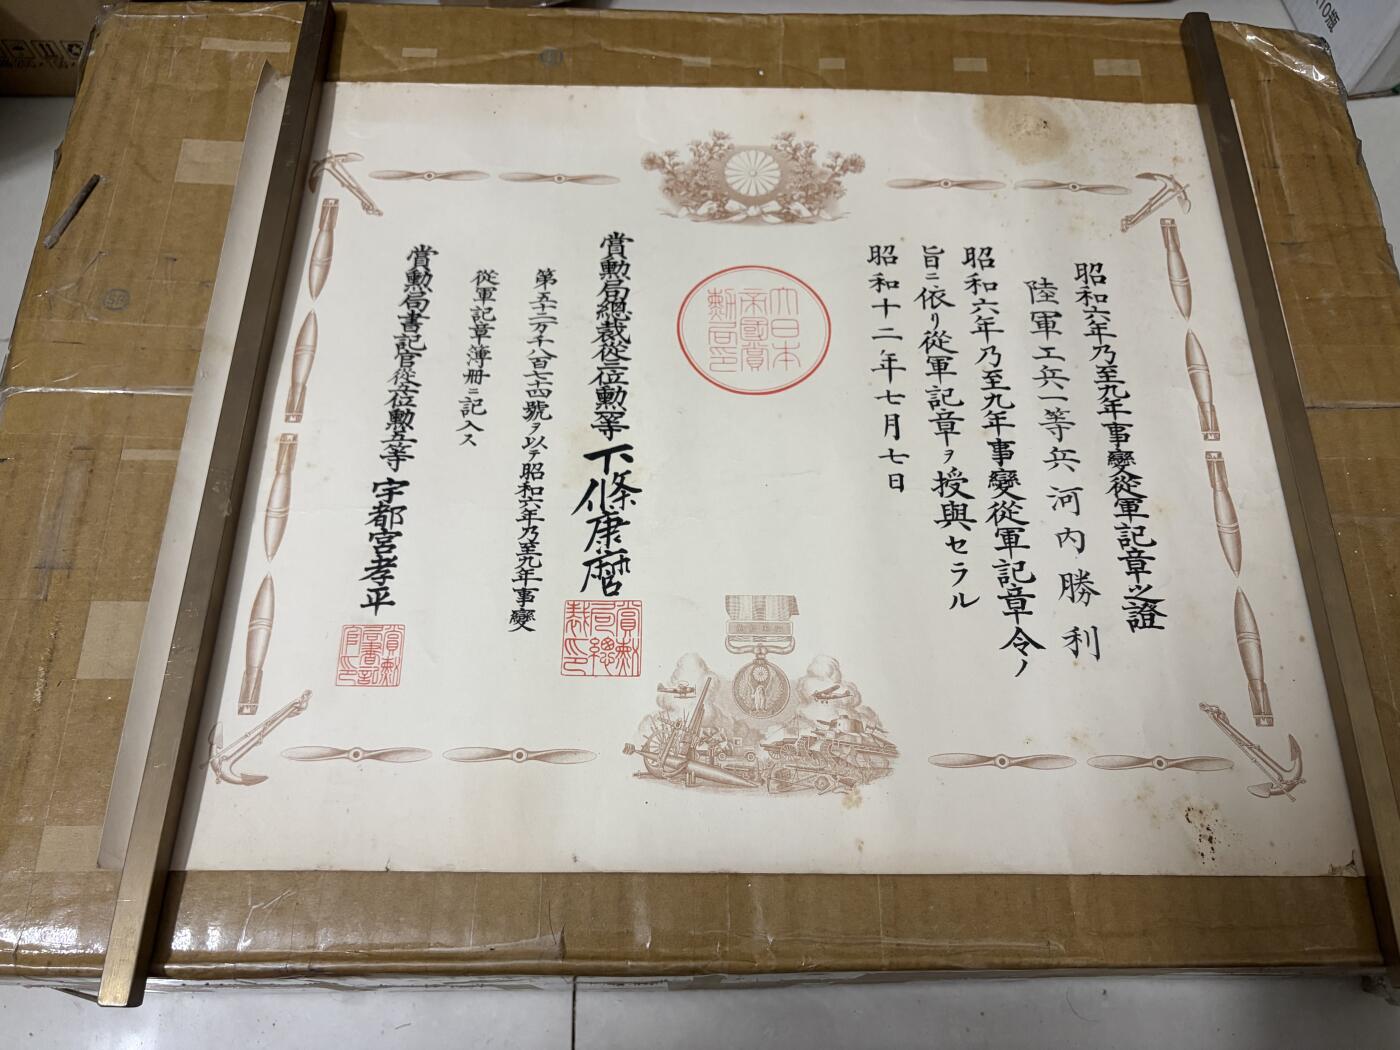 昭和六年乃至九年事變從軍記章之證
陸軍工兵一等兵河内勝利
昭和六年乃至九年事變從軍記章令ノ
旨ニ依リ從軍記章ヲ授與セラル
昭和十二年七月七日
大日本帝國賞勲局印
賞勲局總裁從三位勲等 下條康麿
賞勲局總裁印
第五十二万千八百七十四號ヲ以テ昭和六年乃至九年事變
從軍記章簿冊ニ記入ス
賞勲局書記官從位勲五等 宇都宮孝平
賞勲局書記官印
10瓶